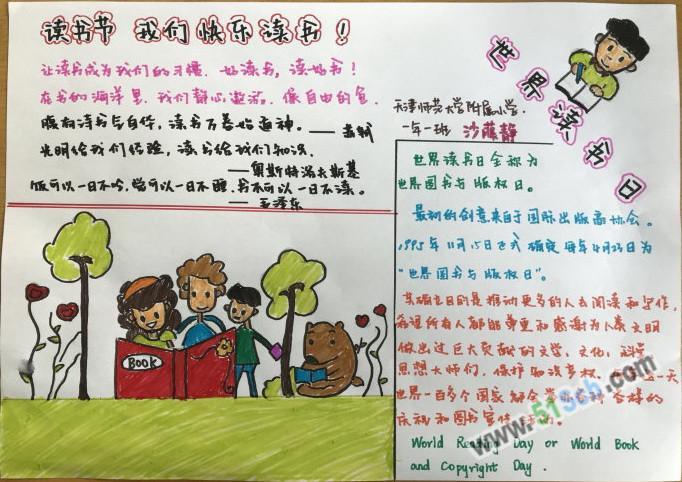 读书节 我们快乐读书！
让读书成为我们的习惯.好读书,读好书！
在书的海洋里.我们静心遨游.像自由的鱼.
腹有诗书气自华，读书万卷始通神。——苏轼
光明给我们经验，读书给我们知识.
——奥斯特洛夫斯基
饭可以一日不吃，觉可以一日不睡，书不可以一日不读。
——毛泽东
BOOK
世界读书日
天津师范大学附属小学.
一年一班 沙蕴静
世界读书日全称为
世界图书与版权日。
最初的创意来自于国际出版商协会。
1995年11月15日正式确定每年4月23日为
"世界图书与版权日"。
其确立目的是推动更多的人去阅读和写作，
希望所有人都能尊重和感谢为人类文明
做出过巨大贡献的文学，文化，科学
思想大师们，保护知识产权。一天
世界一百多个国家都会举办各种各样的
庆祝和图书宣传活动。
World Reading Day or World Book
and Copyright Day.
www.51Sch.com